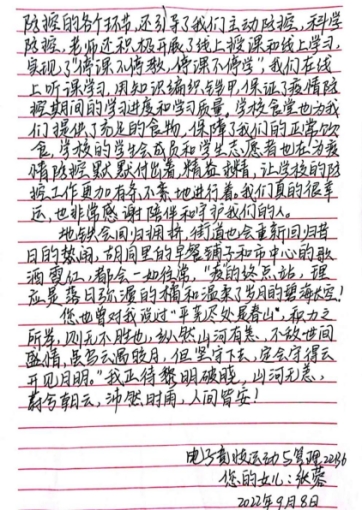 防控的各个环节,还引导了我们主动防控,科学
防控,老师还积极开展了线上授课和线上学习,
实现了"停课不停教,停课不停学",我们在线
上听课学习,用知识编织铠甲,保证了疫情防
控期间的学习进度和学习质量。学校食堂也为我
们提供了充足的食物,保障了我们的正常饮
食,学校的学生会成员和学生志愿者也在为疫
情防控默默付出着,精益求精,让学校的防
控工作更加有条不紊地进行着。我们真的很幸
运,也非常感谢陪伴和守护我们的人。
地铁会回归拥挤,街道也会重新回归昔
日的热闹,胡同里的早餐铺子和市中心的歌
酒霓虹,都会一如往常,"疫的终点站,理
应是落日弥漫的橘和温柔了岁月的碧海太空!
您也曾对我说过"平芜尽处是春山",积力之
所举,则无不胜也,纵然山河有恙,不敌世间
盛情,虽多云遮皎月,但坚守下去,定会守得云
开见月明。"我正待黎明破晓,山河无恙,
蔚兮朝云,沛然时雨,人间皆安!
电子竞技运动与管理2236
您的女儿:张蓉
2022年9月8日